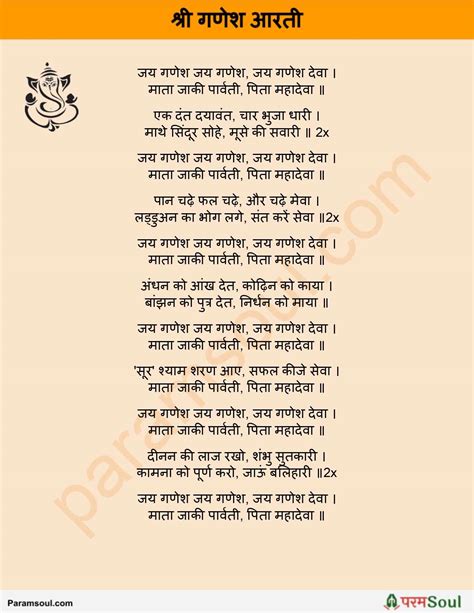 श्री गणेश आरती
जय गणेश जय गणेश, जय गणेश देवा ।
माता जाकी पार्वती, पिता महादेवा ॥
एक दंत दयावंत, चार भुजा धारी ।
माथे सिंदूर सोहे, मूसे की सवारी ॥ 2x
जय गणेश जय गणेश, जय गणेश देवा ।
माता जाकी पार्वती, पिता महादेवा ॥
पान चढ़े फल चढ़े, और चढ़े मेवा ।
लड्डुअन का भोग लगे, संत करें सेवा ॥2x
जय गणेश जय गणेश, जय गणेश देवा ।
माता जाकी पार्वती, पिता महादेवा ॥
अंधन को आंख देत, कोढ़िन को काया ।
बांझन को पुत्र देत, निर्धन को माया ॥
जय गणेश जय गणेश, जय गणेश देवा ।
माता जाकी पार्वती, पिता महादेवा ॥
'सूर' श्याम शरण आए, सफल कीजे सेवा ।
माता जाकी पार्वती, पिता महादेवा ॥
जय गणेश जय गणेश, जय गणेश देवा ।
माता जाकी पार्वती, पिता महादेवा ॥
दीनन की लाज रखो, शंभु सुतकारी ।
कामना को पूर्ण करो, जाऊं बलिहारी ॥2x
जय गणेश जय गणेश, जय गणेश देवा ।
माता जाकी पार्वती, पिता महादेवा ॥
paramsoul.com
Paramsoul.com
परमSoul